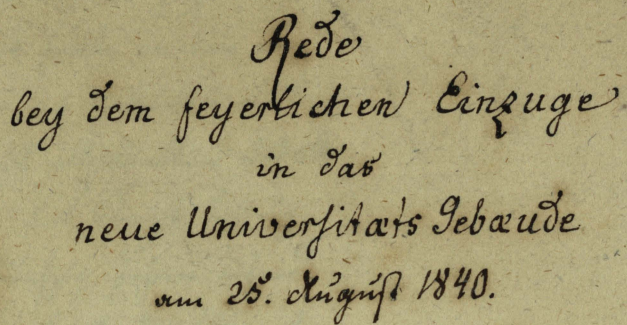 Rede
bey dem feyerlichen Einzuge
in das
neue Universitæts Gebæude
am 25. August 1840.